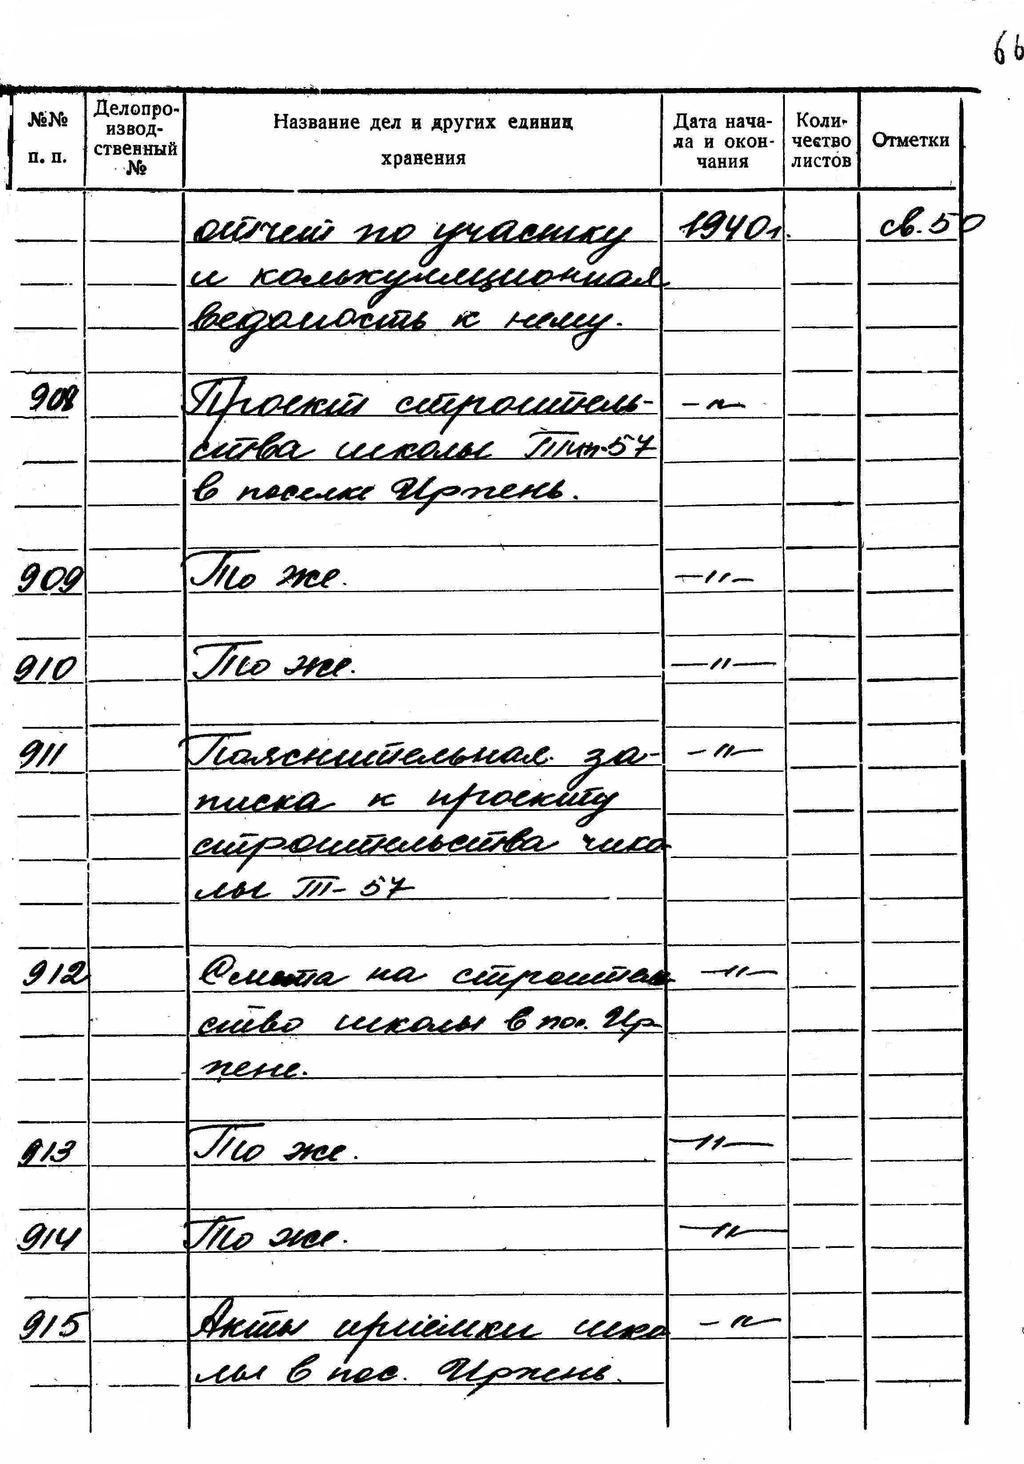 66
№№ п. п. Делопроизводственный № Название дел и других единиц хранения Дата начала и окончания Количество листов Отметки
отчет по участку 1940г. св.50
и калькуляционная
ведомость к нему.
908 Проект строитель- -"-
ства школы Тип-57
в поселке Иржень.
909 То же. -"-
910 То же. -"-
911 Пояснительная за- -"-
писка к проекту
строительства шко
лы Т-57
912 Смета на строитель -"-
ство школы в пос. Ир
жене.
913 То же. -"-
914 То же. -"-
915 Акты приёмки шко -"-
лы в пос. Иржень.